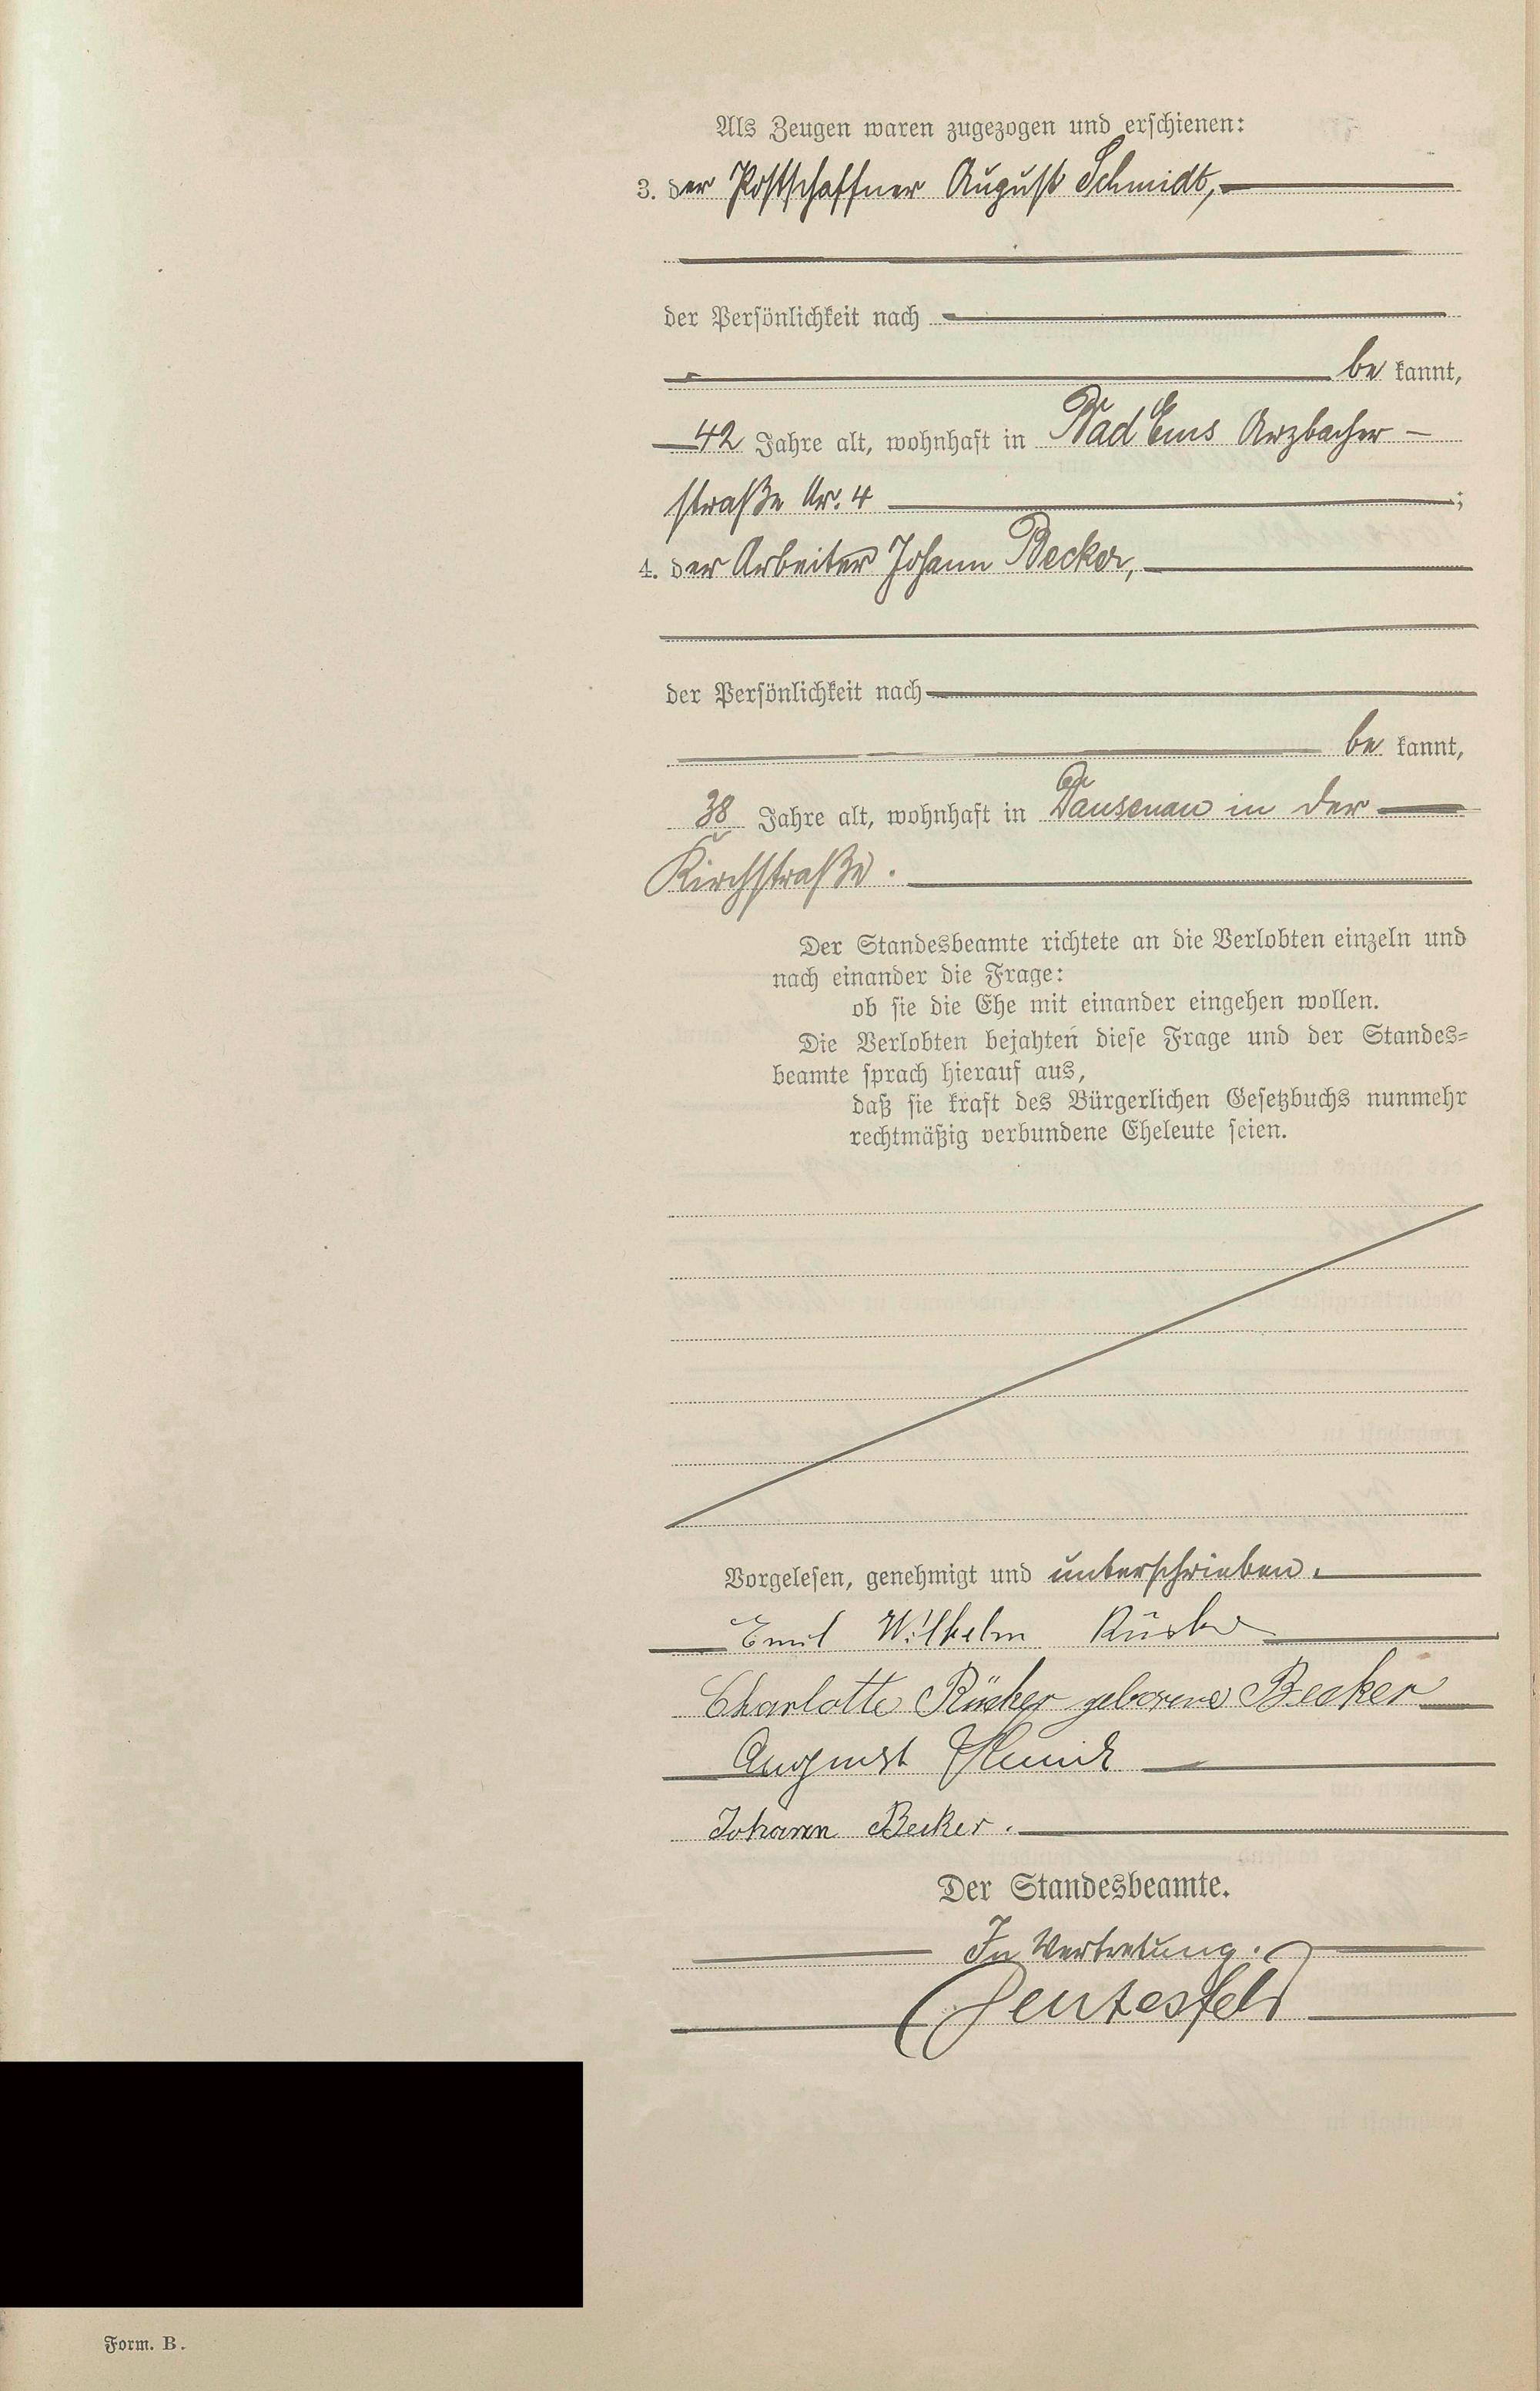 Als Zeugen waren zugezogen und erschienen:
3. der Postschaffner August Schmidt,
der Persönlichkeit nach
be kannt,
42 Jahre alt, wohnhaft in Bad Ems Arzbacher-
straße Nr. 4 ;
4. der Arbeiter Johann Becker,
der Persönlichkeit nach
be kannt,
38 Jahre alt, wohnhaft in Dausenau in der
Kirchstraße.
Der Standesbeamte richtete an die Verlobten einzeln und
nach einander die Frage:
ob sie die Ehe mit einander eingehen wollen.
Die Verlobten bejahten diese Frage und der Standes=
beamte sprach hierauf aus,
daß sie kraft des Bürgerlichen Gesetzbuchs nunmehr
rechtmäßig verbundene Eheleute seien.
Vorgelesen, genehmigt und unterschrieben.
Emil Wilhelm
Charlotte geborene Becker
August Schmidt
Johann Becker.
Der Standesbeamte.
In Vertretung.
Form. B.